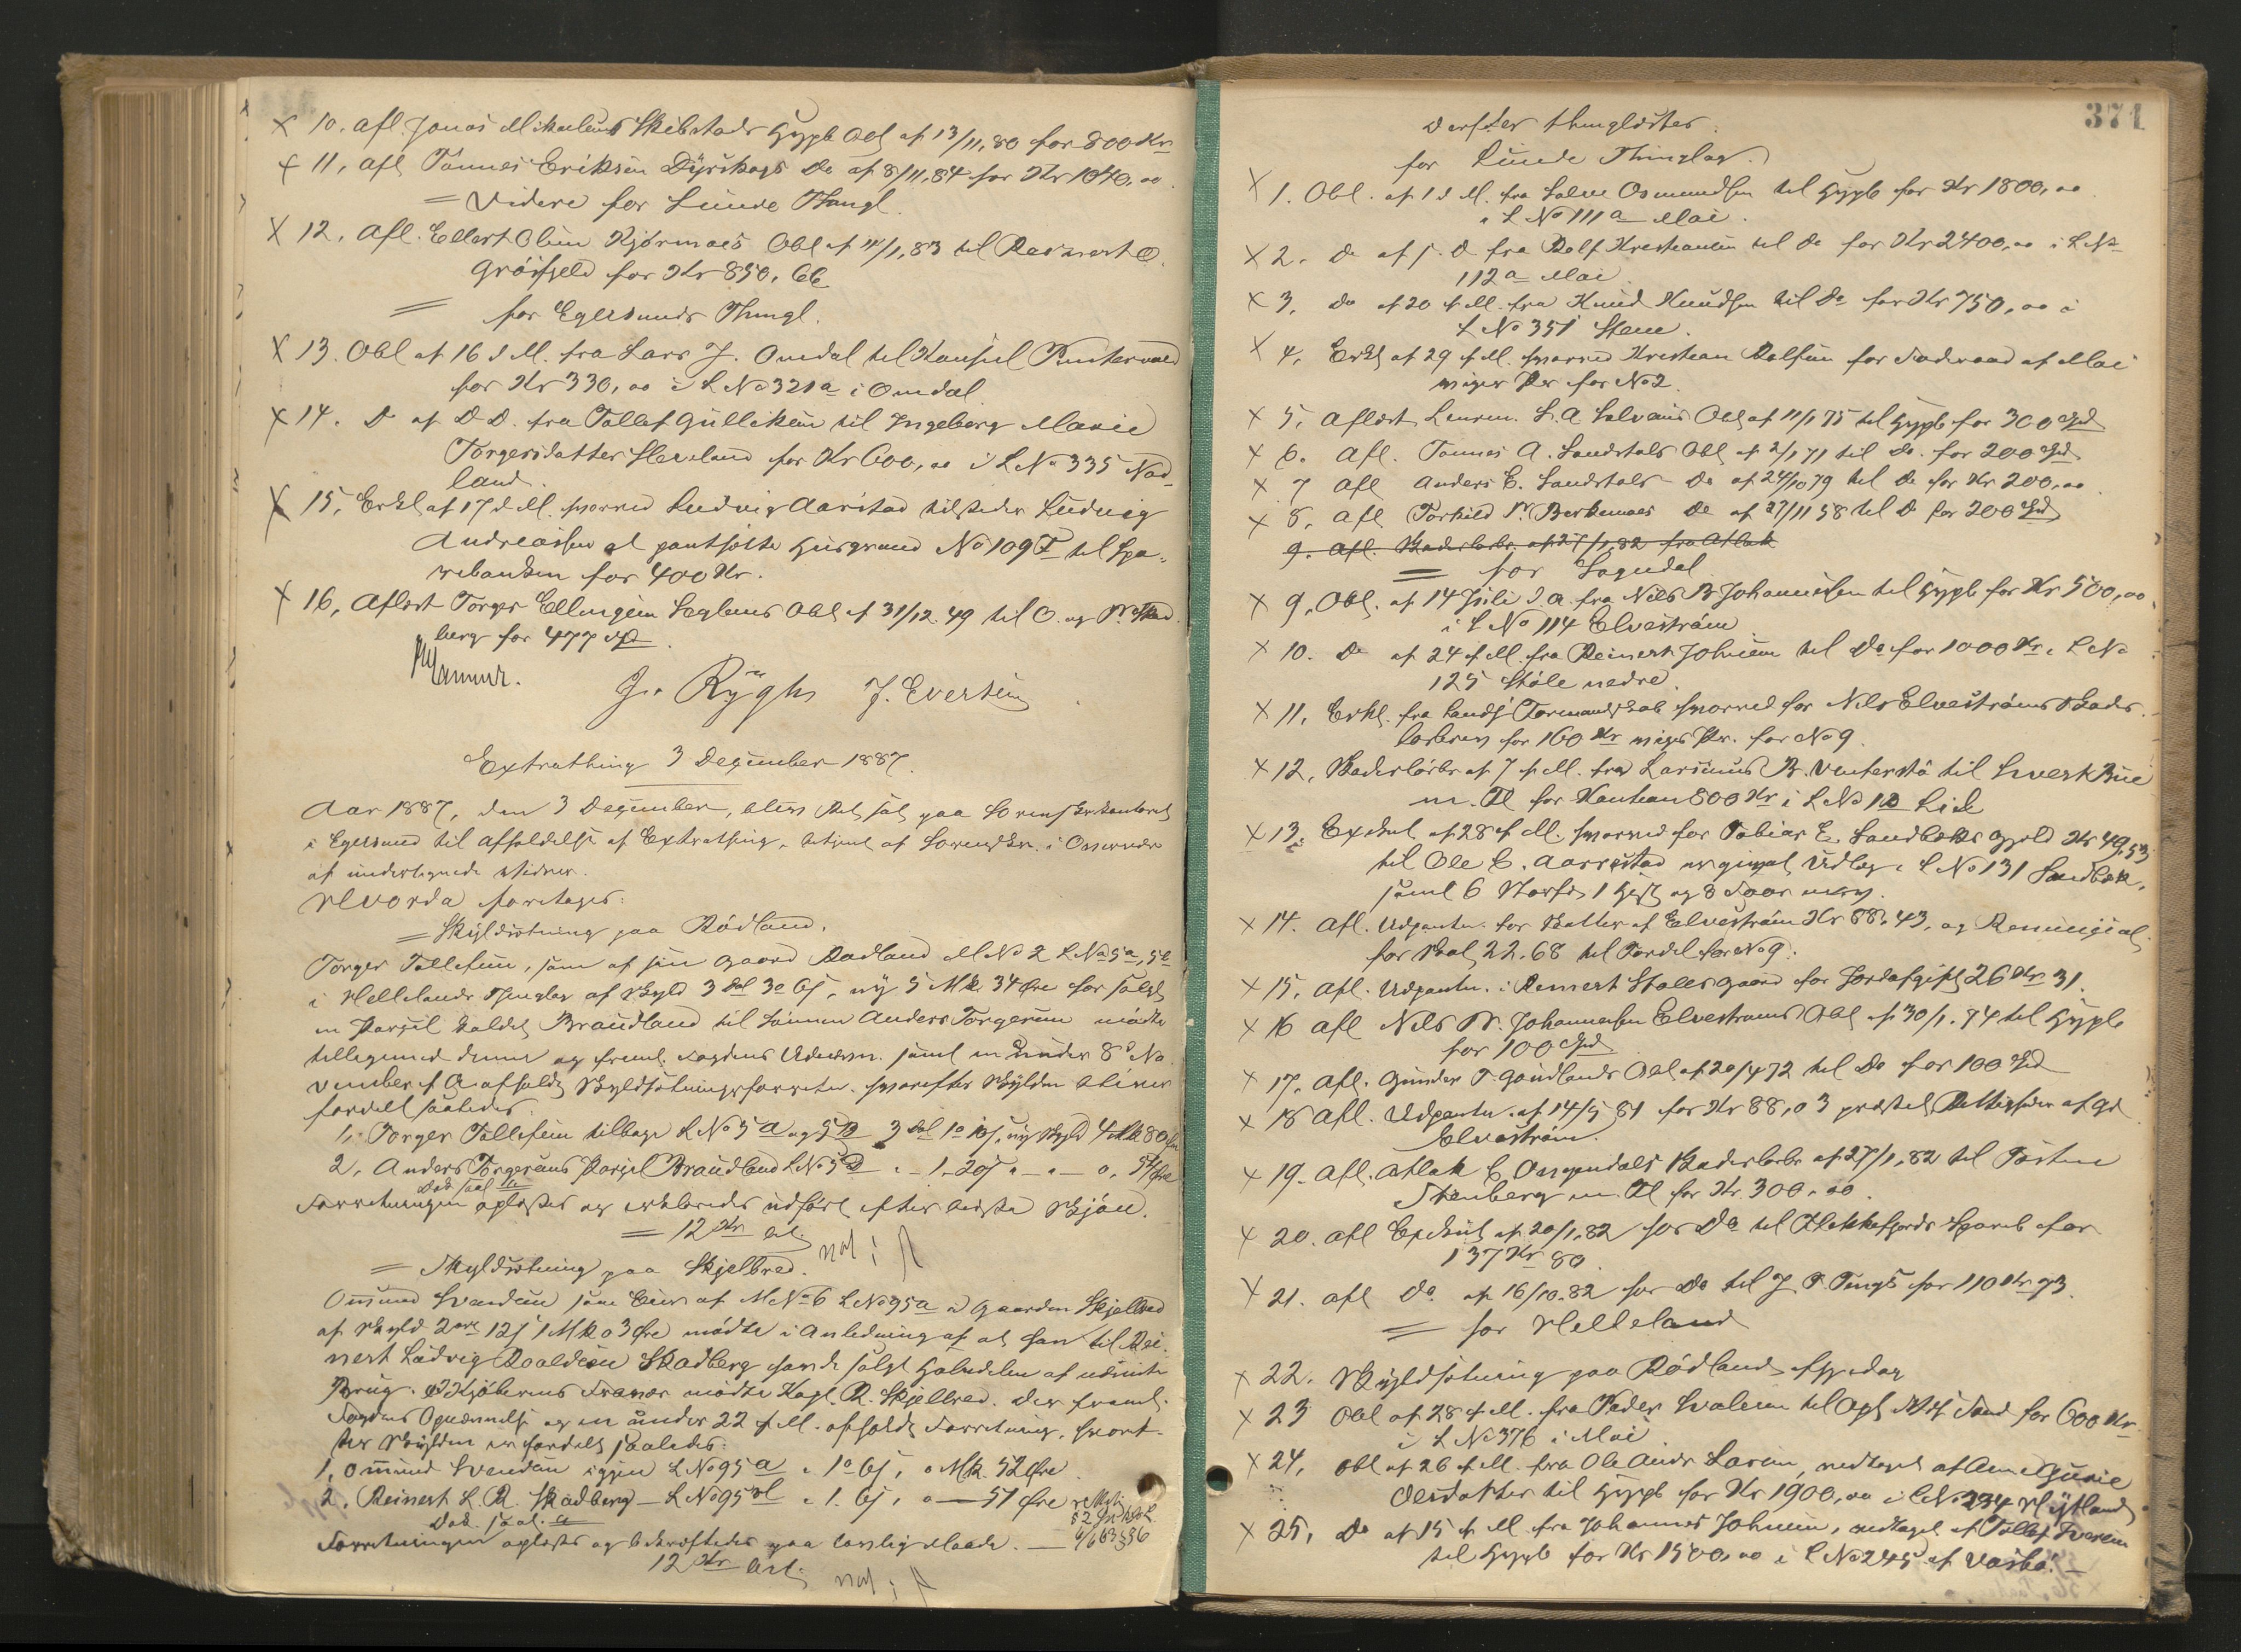 × 10. Afl. Jonas Mikalsens Skibstads Hypb Obl af 13/11.80 for 800 Kr
× 11, Afl Tönnes Eriksen Dÿrskogs Do af 8/11.84 for Kr 1040,00.
= Videre for Lunde Thingl.
× 12. Afl. Ellert Olsen Kjørmoes Obl af 11/1.83 til Reinert O.
Gröifjeld for Kr 850,66
= for Egersunds Thingl.
× 13. Obl af 16 d M. fra Lars J. Omdal til Konsul Puntervold
for Kr 330,00 i L No 321a i Omdal.
× 14. Do af D D. fra Tollef Gulliksen til Ingeborg Marie
Torgersdatter Hevland for Kr 600,00 i L No 335 Nod-
land.
× 15, Erkl af 17 d M. hvorved Ludvig Aarstad tilsteder Ludvig
Andreassen at pantsætte Husgrund No 109 F til Spa-
rebanken for 400 Kr.
× 16, Aflæst Torger Ellingsen Seglems Obl af 31/12.49 til O. og P. Skad-
berg for 477 Spd.
G. Rÿgh J. Evertsen
Extrathing 3 December 1887.
Aar 1887, den 3 December, blev Ret sat paa Sorenskr.kontoret
i Egersund til Afholdelse af Extrathing, betjent af Sorenskr. i Overvær
af undertegnede Vidner.
Hvorda foretages:
= Skÿldsætning paa Rödland.
Torger Tollefsen, som af sin Gaard Rödland M No 2 L No 5a, 5b
i Hellelands Thinglag af Skyld 3 dal 3 o 6 s, nÿ 5 Mk 34 Øre har solgt
en Parcel kaldet Braudland til Sönnen Anders Torgersen mödte
tilligemed denne og freml. Fogdens Udnævn. samt en under 8de No-
vember f A afholdt Skyldsætningsforretn. hvorefter Skÿlden bliver
fordelt saaledes:
1, Torger Tollefsen tilbage L No 5a og 5b 3 dal 1 o 16 s, nÿ Skyld 4 Mk 80 Øre
2, Anders Torgersens Parcel Braudland L No 5 - 1 - 20 s - 0, 54 Øre
Dok. saal. a
Forretningen oplæstes og erklæredes udført efter bedste Skjön.
= 12 Kr bet.
= Skyldsætning paa Skjelbred.
Omund Svendsen som Eier af M No 6 L No 95a i Gaarden Skjelbred
af Skyld 2 ort 12 s 1 Mk 03 Øre mödte i Anledning af at han til Rei-
nert Ludvig Roaldsen Skadberg havde solgt Halvdelen af nævnte
Brug. I Kjöberens Fravær mödte Kasp. R. Skjelbred. Der freml.
Fogdens Opnævnelse og en under 22 f M. afholdt Forretning, hvoref-
ter Skÿlden er fordelt saaledes:
1, Omund Svendsen igjen L No 95a - 1 o 6 s, 0 Mk. 52 Øre
2, Reinert L. R. Skadberg - L No 95 - 1. 6 s, 0 - 51 Øre
Dok. saal. a
Forretningen oplæstes og bekræftedes paa lovlig Maade.
12 Kr bet.
371
Derefter thinglæstes:
for Lunde Thinglag.
× 1. Obl. af 1 d M. fra Salve Osmundsen til Hypb for Kr 1800,00
i L No 111a Moi.
× 2. Do af s. D fra Rolf Kristensen til Do for Kr 2400,00 i L No
112a Moi
× 3, Do af 20 f M. fra Knud Knudsen til Do for Kr 750,00 i
L No 351 Stene.
× 4, Erkl af 29 f M. hvorved Kristian Rolfsen for Föderaad af Moi
viger Pr for No 2.
× 5, Aflæst Lensm. L. A. Salvesens Obl af 11/1 75 til Hypb for 300 Spd
× 6. Afl. Tönnes A. Sandstøls Obl af 2/1 71 til Do. for 200 Spd.
× 7 Afl Anders E. Sandstøls Do af 24/10 79 til Do for Kr 200,00.
× 8, Afl Torkild P. Birkemoes Do af 27/11 58 til D for 200 Spd
9. Afl. Skadesløsbr. af 27/1.82 fra Atlak
= for Sogndal
× 9, Obl. af 14 Juli d. A. fra Nils B Johannesen til Hypb for Kr 500,00
i L No 114 Elveström
× 10. Do af 24 f M. fra Reinert Johnsen til Do for 1000 Kr i L No
125 Støle nedre.
× 11, Erkl. fra Sands Formandskab hvorved for Nils Elvestrøms Skades-
løsbrev for 160 Kr viges Pr. for No 9.
× 12, Skadesløsbr af 7 f M. fra Larsinus B. Ventersto til Sivert Bue
m. Fl for Kaution 800 Kr i L No 1 b Lid
× 13. Exekut. af 28 f M. hvorved for Tobias E. Sandbæks Gjæld Kr 49,53
til Ole C. Aarrestad er givet Udlæg i L No 131 Sandbæk,
samt 6 Storfæ, 1 Hest og 8 Faar m m.
× 14. Afl. Udpantn. for Skatter af Elveström Kr 88.43, og Renunciat.
for Skat 22.68 til Fordel for No 9.
× 15, Afl. Udpantn. i Reinert Støles Gaard for Jordafgift 26 Kr 31
× 16 Afl Nils B. Johannesen Elvestrøms Obl af 30/1.74 til Hypb
for 100 Spd
× 17, Afl. Gunder T. Gaudlands Obl af 20/4 72 til Do for 100 Spd
× 18 Afl. Udpantn. af 14/5 81 for Kr 88,03 prstl. Rettigheder af Gd
Elveström.
× 19. Afl. Atlak E Orrgendals Skadesløsbr af 27/1.82 til Torstein
Stenberg m. Fl for Kr. 300,00.
× 20. Afl Exekut af 20/1.82 hos Do til Flekkefjords Spareb for
137 Kr 80.
× 21. Afl Do af 16/10.82 hos Do til J. P. Tengs for 110 Kr 93.
= for Helleland
× 22. Skÿldsætning paa Rödland, se foran
× 23 Obl af 28 f M. fra Peder Svalesen til Opl. Sand for 600 Kr
i L No 376 i Moi
× 24, Obl af 26 f M. fra Ole Andr Larsen, vedtaget af Ane Gurie
Olesdatter til Hypb for Kr 1900,00 i L No 234 Hÿtland
× 25, Do af 15 f M fra Johannes Johnsen, vedtaget af Tollef Iversen
til Hypb for Kr 1500,00 i L No 245 af Vasbö.